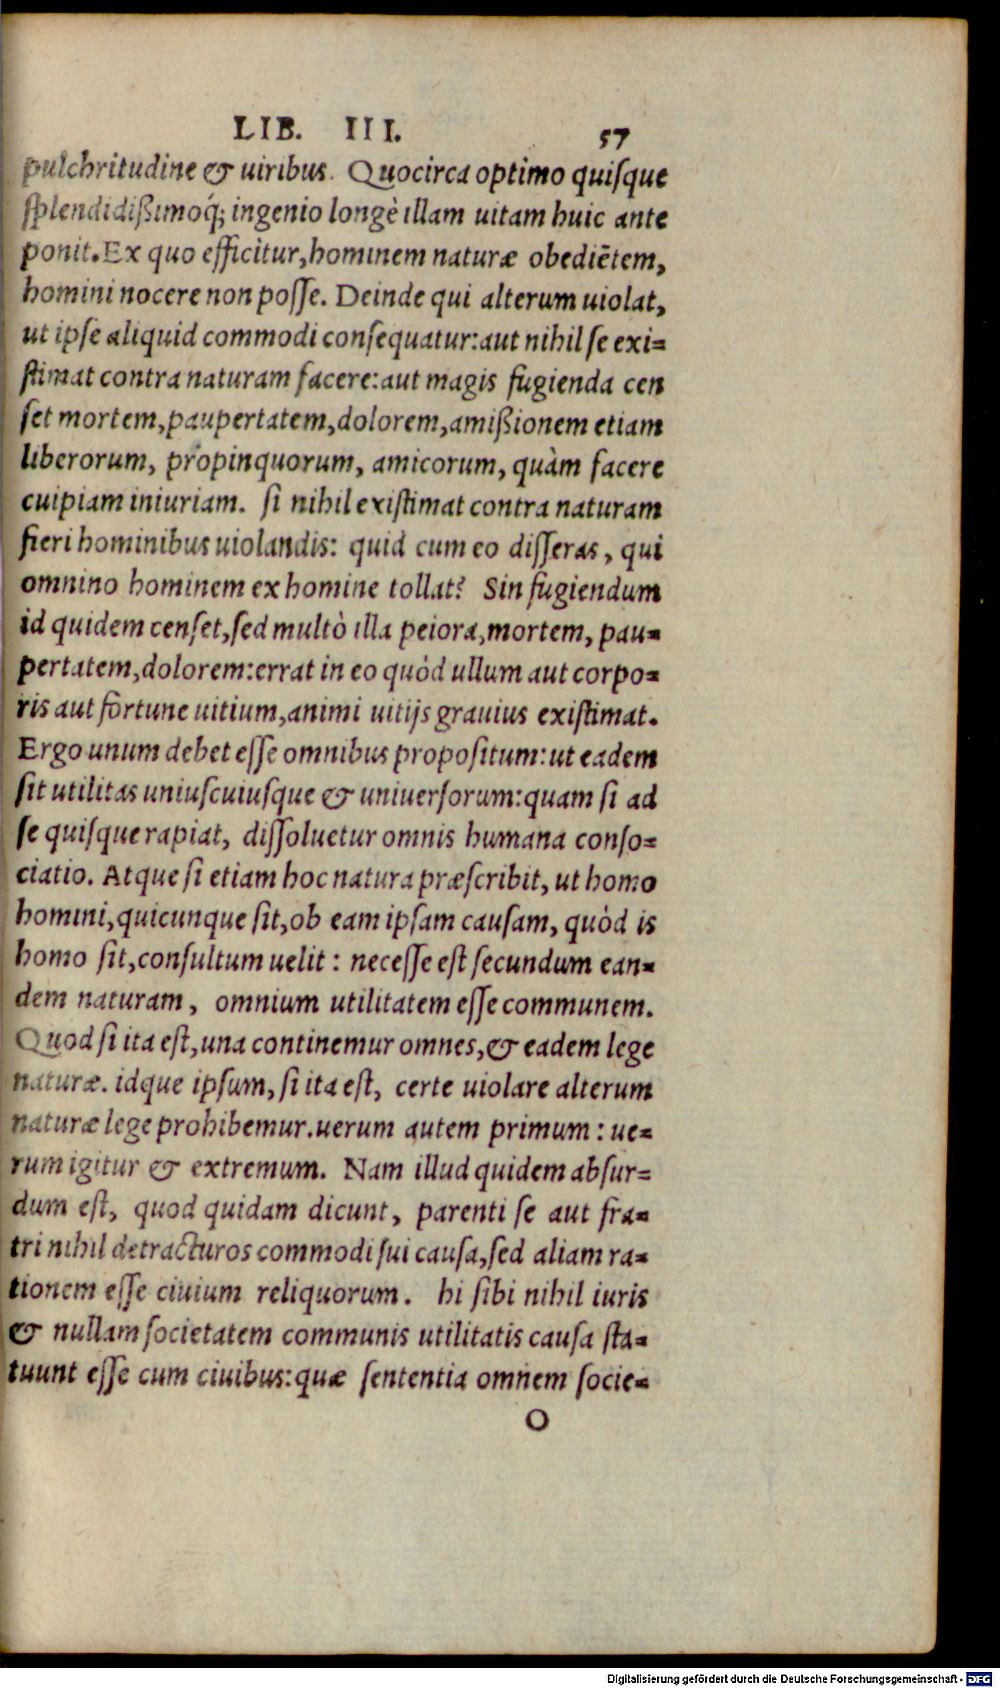 LIB. III. 57
pulchritudine & uiribus. Quocirca optimo quiſque
ſplendidißimoq́; ingenio longè illam uitam huic ante
ponit. Ex quo efficitur, hominem naturæ obediētem,
homini nocere non poſſe. Deinde qui alterum uiolat,
ut ipſe aliquid commodi conſequatur: aut nihil ſe exi=
ſtimat contra naturam facere: aut magis fugienda cen
ſet mortem, paupertatem, dolorem, amißionem etiam
liberorum, propinquorum, amicorum, quàm facere
cuipiam iniuriam. ſi nihil exiſtimat contra naturam
fieri hominibus uiolandis: quid cum eo diſſeras, qui
omnino hominem ex homine tollat? Sin fugiendum
id quidem cenſet, ſed multò illa peiora, mortem, pau=
pertatem, dolorem: errat in eo quòd ullum aut corpo=
ris aut fortune uitium, animi uitijs grauius exiſtimat.
Ergo unum debet eſſe omnibus propoſitum: ut eadem
ſit utilitas uniuſcuiuſque & uniuerſorum: quam ſi ad
ſe quiſque rapiat, diſſoluetur omnis humana conſo=
ciatio. Atque ſi etiam hoc natura præſcribit, ut homo
homini, quicunque ſit, ob eam ipſam cauſam, quòd is
homo ſit, conſultum uelit: neceſſe eſt ſecundum ean=
dem naturam, omnium utilitatem eſſe communem.
Quod ſi ita eſt, una continemur omnes, & eadem lege
naturæ. idque ipſum, ſi ita eſt, certe uiolare alterum
naturæ lege prohibemur. uerum autem primum: ue=
rum igitur & extremum. Nam illud quidem abſur=
dum eſt, quod quidam dicunt, parenti ſe aut fra=
tri nihil detracturos commodi ſui cauſa, ſed aliam ra=
tionem eſſe ciuium reliquorum. hi ſibi nihil iuris
& nullam ſocietatem communis utilitatis cauſa ſta=
tuunt eſſe cum ciuibus: quæ ſententia omnem ſocie=
O
Digitalisierung gefördert durch die Deutsche Forschungsgemeinschaft - DFG